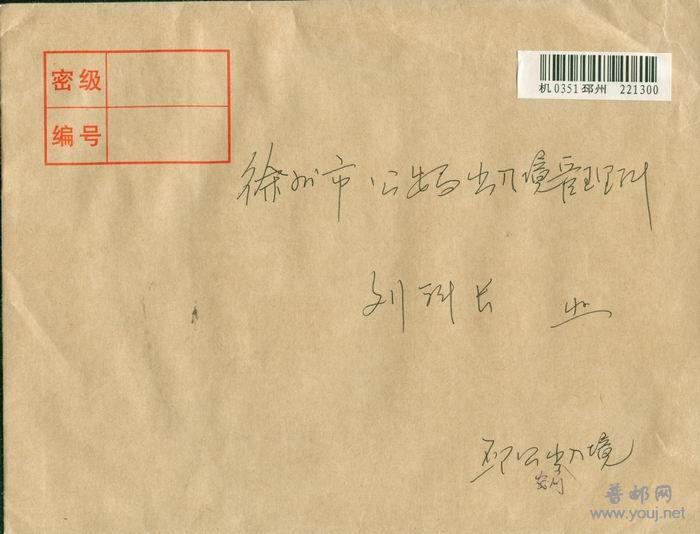 密级
编号
机0351邳州 221300
徐州市公安局出入境管理科
刘科长
邳公出入境
普邮网
www.youj.net